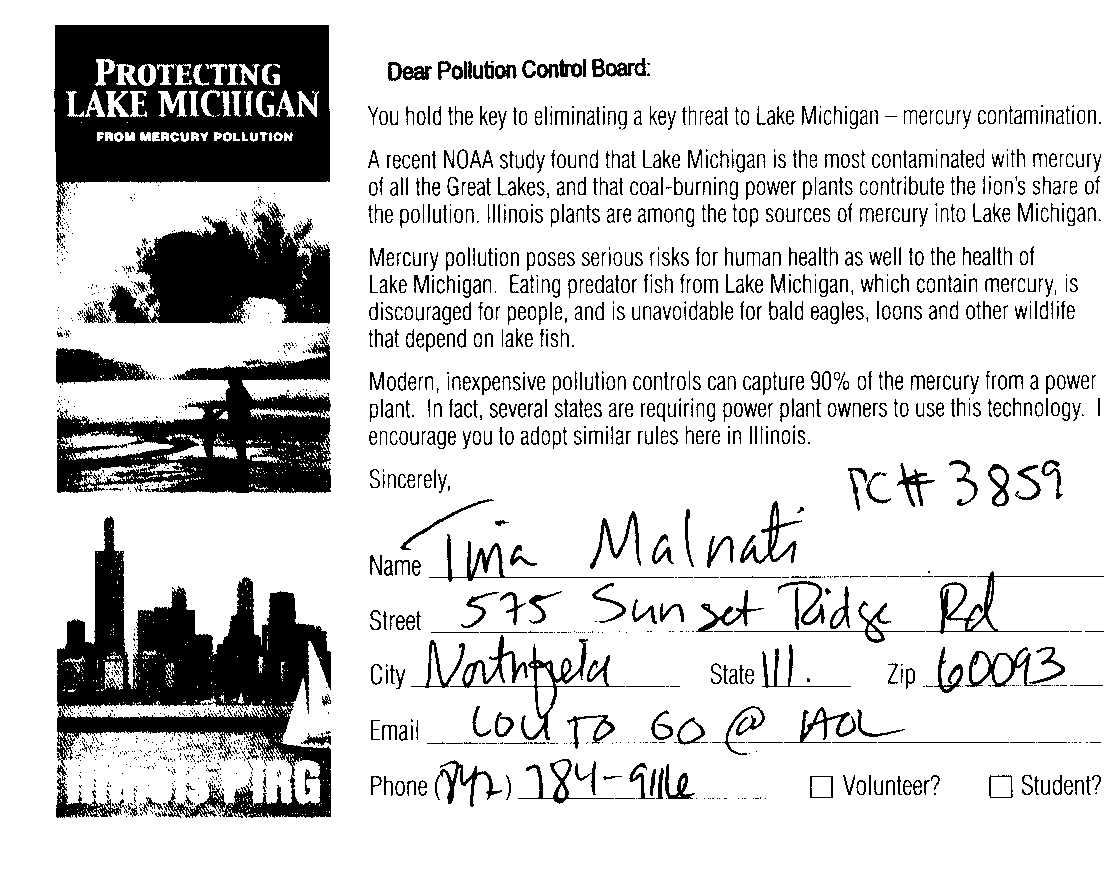 PROTECTING
LAKE MICHIGAN
FROM MERCURY POLLUTION
ILLINOIS PIRG
Dear Pollution Control Board:
You hold the key to eliminating a key threat to Lake Michigan – mercury contamination.
A recent NOAA study found that Lake Michigan is the most contaminated with mercury
of all the Great Lakes, and that coal-burning power plants contribute the lion's share of
the pollution. Illinois plants are among the top sources of mercury into Lake Michigan.
Mercury pollution poses serious risks for human health as well to the health of
Lake Michigan. Eating predator fish from Lake Michigan, which contain mercury, is
discouraged for people, and is unavoidable for bald eagles, loons and other wildlife
that depend on lake fish.
Modern, inexpensive pollution controls can capture 90% of the mercury from a power
plant. In fact, several states are requiring power plant owners to use this technology. I
encourage you to adopt similar rules here in Illinois.
Sincerely,
PC# 3859
Name Tina Malnati
Street 575 Sunset Ridge Rd
City Northfield State Ill. Zip 60093
Email LOU TO GO @ AOL
Phone (847) 784-9116
Volunteer? Student?